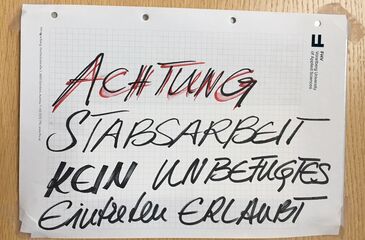 ACHTUNG
STABSARBEIT
KEIN UNBEFUGTES
Eintreten ERLAUBT
F
FHV
Vorarlberg University
of Applied Sciences